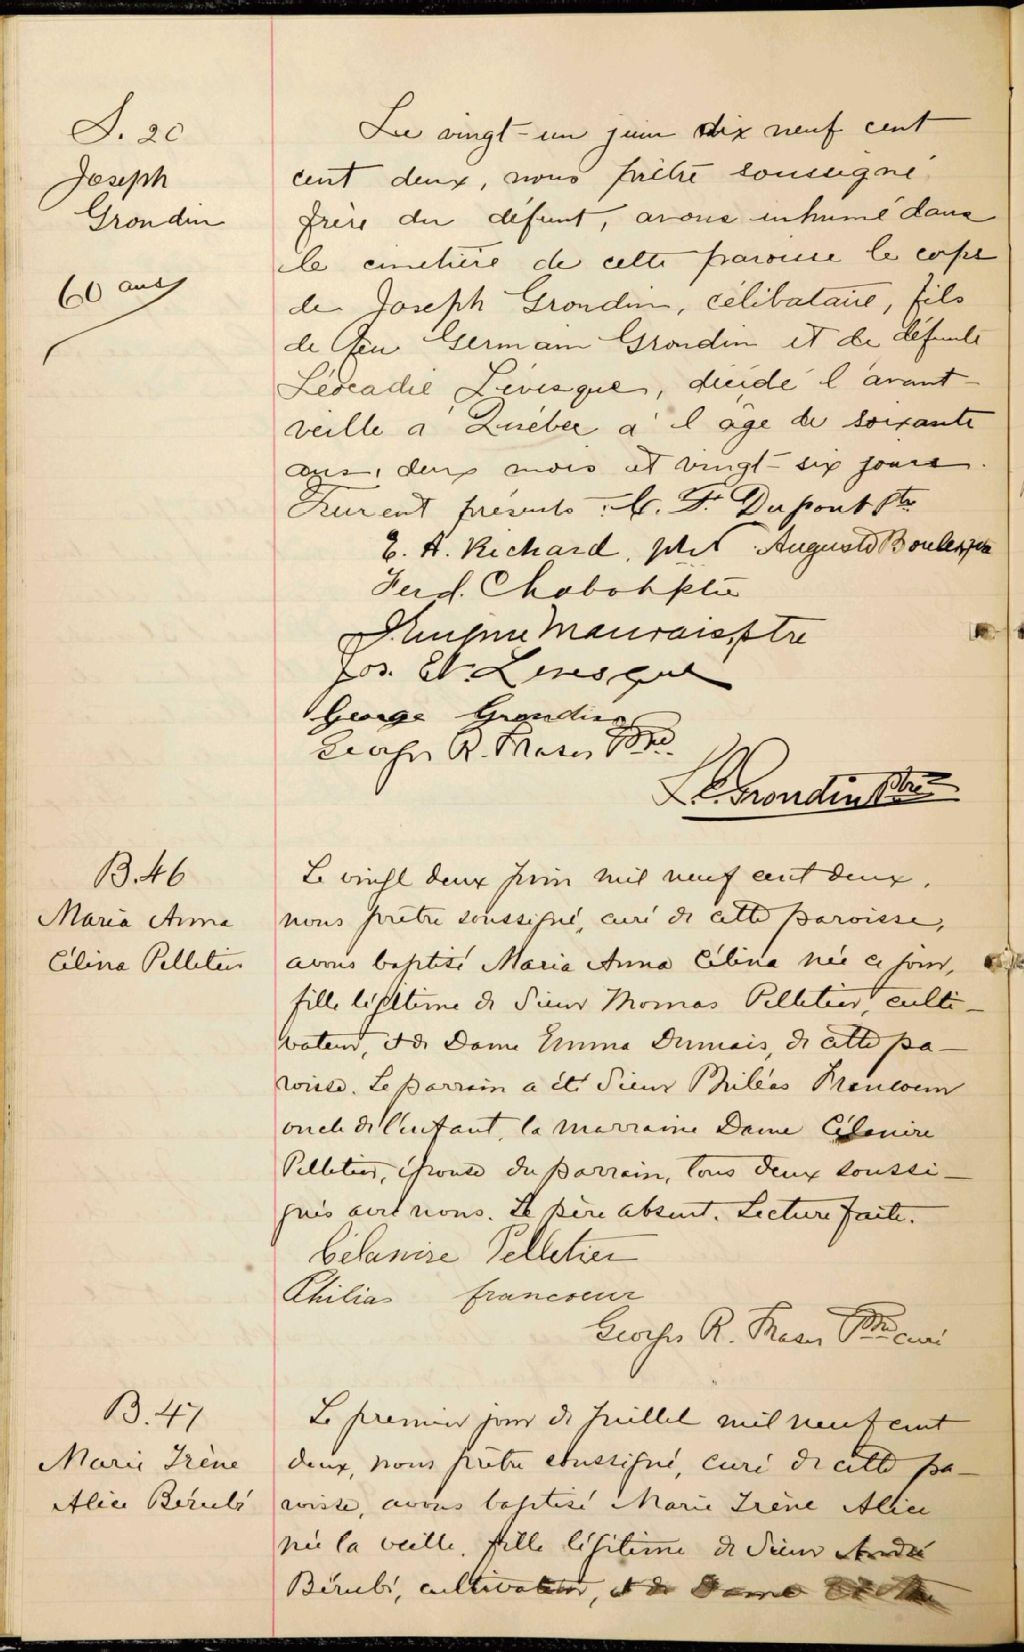 S. 20
Joseph
Grondin
60 ans
Le vingt-un juin dix neuf cent
cent deux, nous prêtre soussigné
frère du défunt, avons inhumé dans
le cimetière de cette paroisse le corps
de Joseph Grondin, célibataire, fils
de feu Germain Grondin et de défunte
Léocadie Lévesque, décédé l'avant-
veille à Québec à l'âge de soixante
ans, deux mois et vingt-six jours.
Furent présents : F. Dupont Ptre
E. A. Richard, ptre Auguste Boulanger
Ferd. Chabot ptre
J. Eugène Mauvais, ptre
Jos. Et. Levesque
George Grondin
Georges R. Fraser Ptre
L. C. Grondin Ptre
B. 46
Maria Anna
Célina Pelletier
Le vingt deux juin mil neuf cent deux,
nous prêtre soussigné, curé de cette paroisse,
avons baptisé Maria Anna Célina née ce jour,
fille légitime de Sieur Thomas Pelletier, culti-
vateur, et de Dame Emma Dumais, de cette pa-
roisse. Le parrain a été Sieur Philéas Francoeur
oncle de l'enfant, la marraine Dame Célanire
Pelletier, épouse du parrain, tous deux soussi-
gnés avec nous. Le père absent. Lecture faite.
Célanire Pelletier
Philias francoeur
Georges R. Fraser Ptre curé
B. 47
Marie Irène
Alice Bérubé
Le premier jour de Juillet mil neuf cent
deux, nous prêtre soussigné, curé de cette pa-
roisse, avons baptisé Marie Irène Alice
née la veille, fille légitime de Sieur André
Bérubé, cultivateur, et de Dame